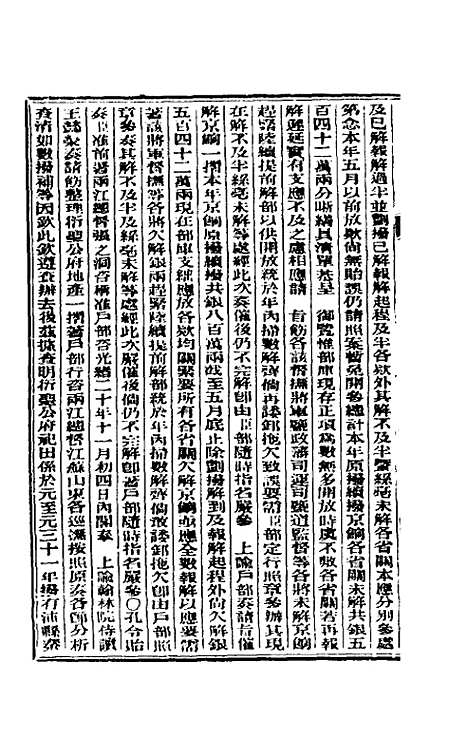 及已解報解過半並劃撥已解報解起程及半各欵外其解不及半暨絲毫未解各省關本應分別參處
第念本年五月以前放欵尚無貽誤仍請照案暫免開參總計本年原撥續撥京餉各省關未解共銀五
百四十二萬兩分晰繕具清單恭呈　御覽惟部庫現存正項爲數無多開放時虞不敷各省關若再報
解遲延實有支應不及之虞相應請　旨飭各該督撫將軍鹽政藩司運司鹽道監督等各將未解京餉
趕緊陸續提前解部以供開放統於年內掃數解齊倘再諉卸拖欠致誤要需臣部定行照章參辦其現
在解不及半絲毫未解等處經此次奏催後仍不完解即由臣部隨時指名嚴參　上諭戶部奏請旨催
解京餉一摺本年京餉原撥續撥共銀八百萬兩截至五月底止除劃撥解到及報解起程外尚欠解銀
五百四十二萬兩現在部庫支絀應放各欵均關緊要所有各省關欠解京餉亟應全數報解以應要需
著該將軍督撫等各將欠解銀兩趕緊陸續提前解部統於年內掃數解齊倘敢諉卸拖欠即由戶部照
章參奏其解不及半及絲毫未解等處經此次嚴催後倘仍不完解即著戶部隨時指名嚴參〇孔令貽
奏臣准前署兩江總督張之洞咨稱准戶部咨光緒二十年十一月初四日內閣奉　上諭翰林院侍讀
王懿榮奏請飭整理衍聖公府地產一摺著戶部行咨兩江總督江蘇山東各巡撫按照原奏各節分析
查清如數撥補等因欽此欽遵查辦去後茲據查明衍聖公府祀田係於元至元三十一年撥有沛縣寨